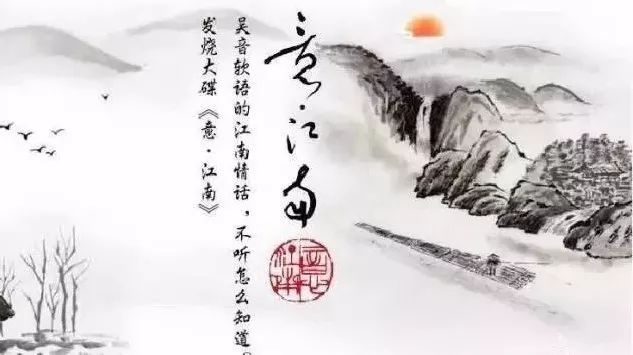 意江南
吴音软语的江南情话，不听怎么知道。
发烧大碟《意·江南》